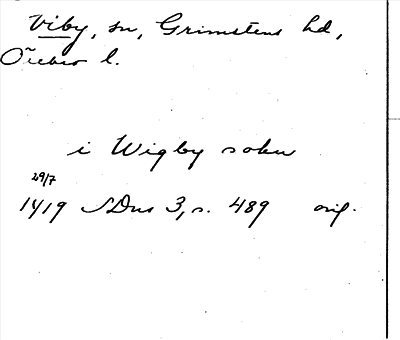 Viby, sn, Grimstens hd,
Örebro l.
i Wigby sokn
29/7
1419 SDns 3, s. 489 orig.